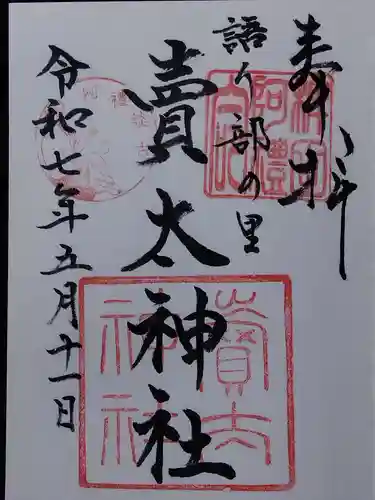 奉拝
語り部の里
賣太神社
令和七年五月十一日
賣太
神社